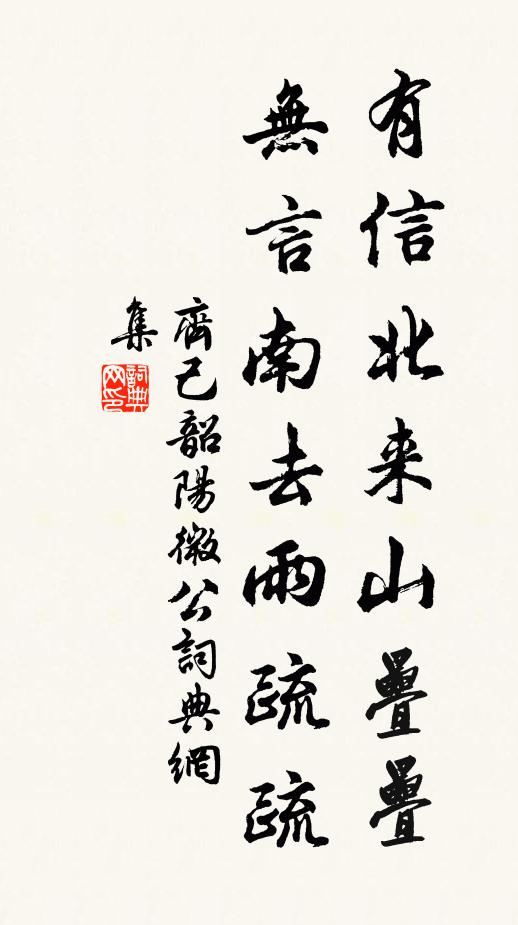 有信北来山疊疊
無言南去雨疏疏
齊己韶陽微公詞典網
集
詞典網印